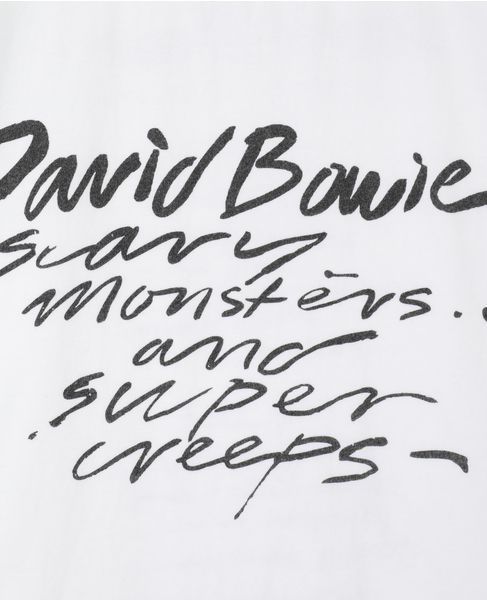 David Bowie
scary
monsters..
and
super
creeps-